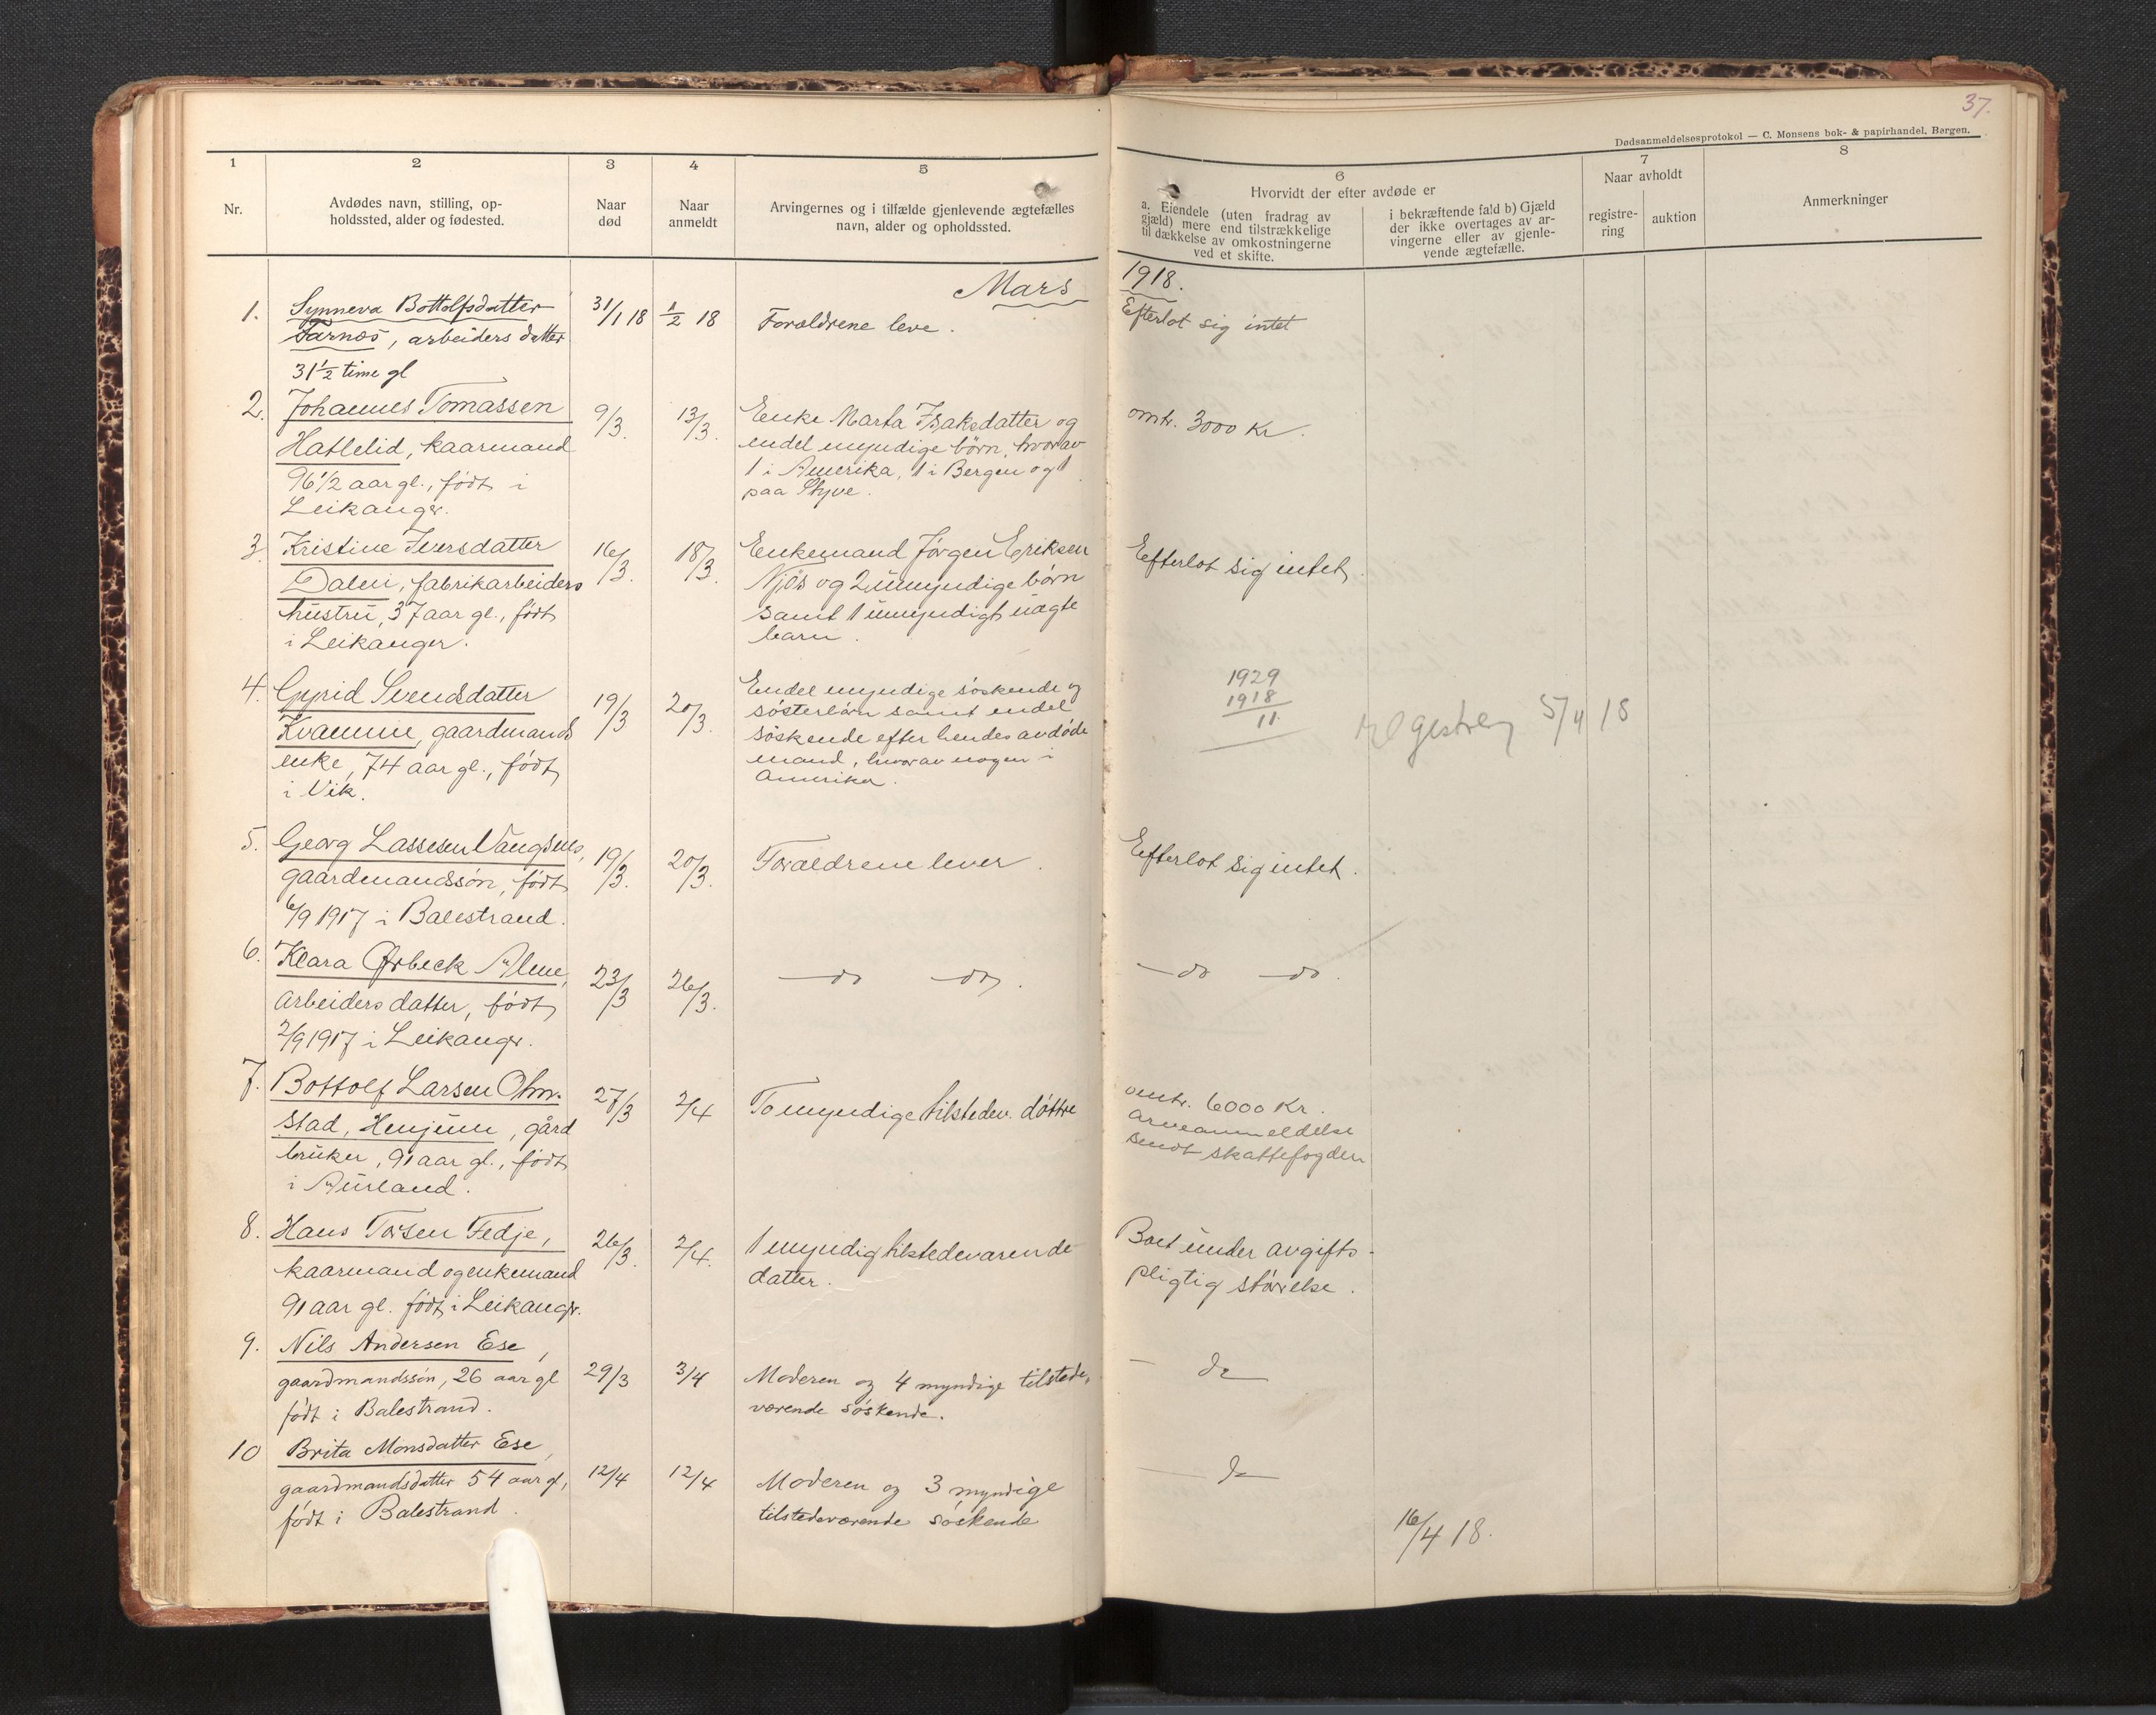 37.
Dødsanmeldelsesprotokol — C. Monsens bok- & papirhandel, Bergen.
1
Nr.
2
Avdødes navn, stilling, op-
holdssted, alder og fødested.
3
Naar
død
4
Naar
anmeldt
5
Arvingernes og i tilfælde gjenlevende ægtefælles
navn, alder og opholdssted.
6
Hvorvidt der efter avdøde er
a. Eiendele (uten fradrag av
gjæld) mere end tilstrækkelige
til dækkelse av omkostningerne
ved et skifte.
i bekræftende fald b) Gjæld
der ikke overtages av ar-
vingerne eller av gjenle-
vende ægtefælle.
7
Naar avholdt
registre-
ring
auktion
8
Anmerkninger
Mars 1918.
1. Synneva Bottolfsdatter
Farnes, arbeiders datter
31½ time gl
31/1 18
1/2 18
Forældrene leve.
Efterlot sig intet
2. Johannes Tomassen
Hatlelid, kaarmand
96 1/2 aar gl., født i
Leikanger.
9/3.
13/3.
Enke Marta Isaksdatter og
endel myndige børn, hvorav
1 i Amerika, 1 i Bergen og 1
paa Styve.
omtr. 3000 Kr.
3. Kristine Iversdatter
Dalen, fabrikarbeiders
hustru, 37 aar gl., født
i Leikanger.
16/3.
18/3.
Enkemand Jørgen Eriksen
Njøs og 2 umyndige børn
samt 1 umyndigt uægte
barn.
Efterlot sig intet.
4. Gyrid Svendsdatter
Kvamme, gaardmands
enke, 74 aar gl., født
i Vik.
19/3
20/3.
Endel myndige søskende og
søsterbørn samt endel
søskende efter hendes avdøde
mand, hvorav nogen i
Amerika.
1929
1918
11.
5/4 18
5. Georg Lassesen Vangsnes,
gaardmandssøn, født
6/9 1917 i Balestrand.
19/3.
20/3.
Forældrene lever.
Efterlot sig intet.
6. Klara Ørbeck Alme,
arbeiders datter, født
2/9 1917 i Leikanger.
23/3
26/3.
— do — do.
— do — do.
7. Bottolf Larsen Ohn-
stad, Henjum, gård
bruker, 91 aar gl., født
i Aurland.
27/3
2/4
To myndige tilstedev. døttre
omtr. 6000 Kr.
Arveanmeldelse
sendt skattefogden
8. Hans Torsen Fedje,
kaarmand og enkemand
91 aar gl. født i Leikanger.
26/3.
2/4.
1 myndig tilstedeværende
datter.
Boet under avgifts-
pligtig størrelse.
9. Nils Andersen Ese,
gaardmandssøn, 26 aar gl
født i Balestrand.
29/3
3/4
Moderen og 4 myndige tilstede-
værende søskende.
— do —
10 Brita Monsdatter Ese,
gaardmandsdatter 54 aar gl,
født i Balestrand.
12/4
12/4
Moderen og 3 myndige
tilstedeværende søskende
— do —
16/4 18.